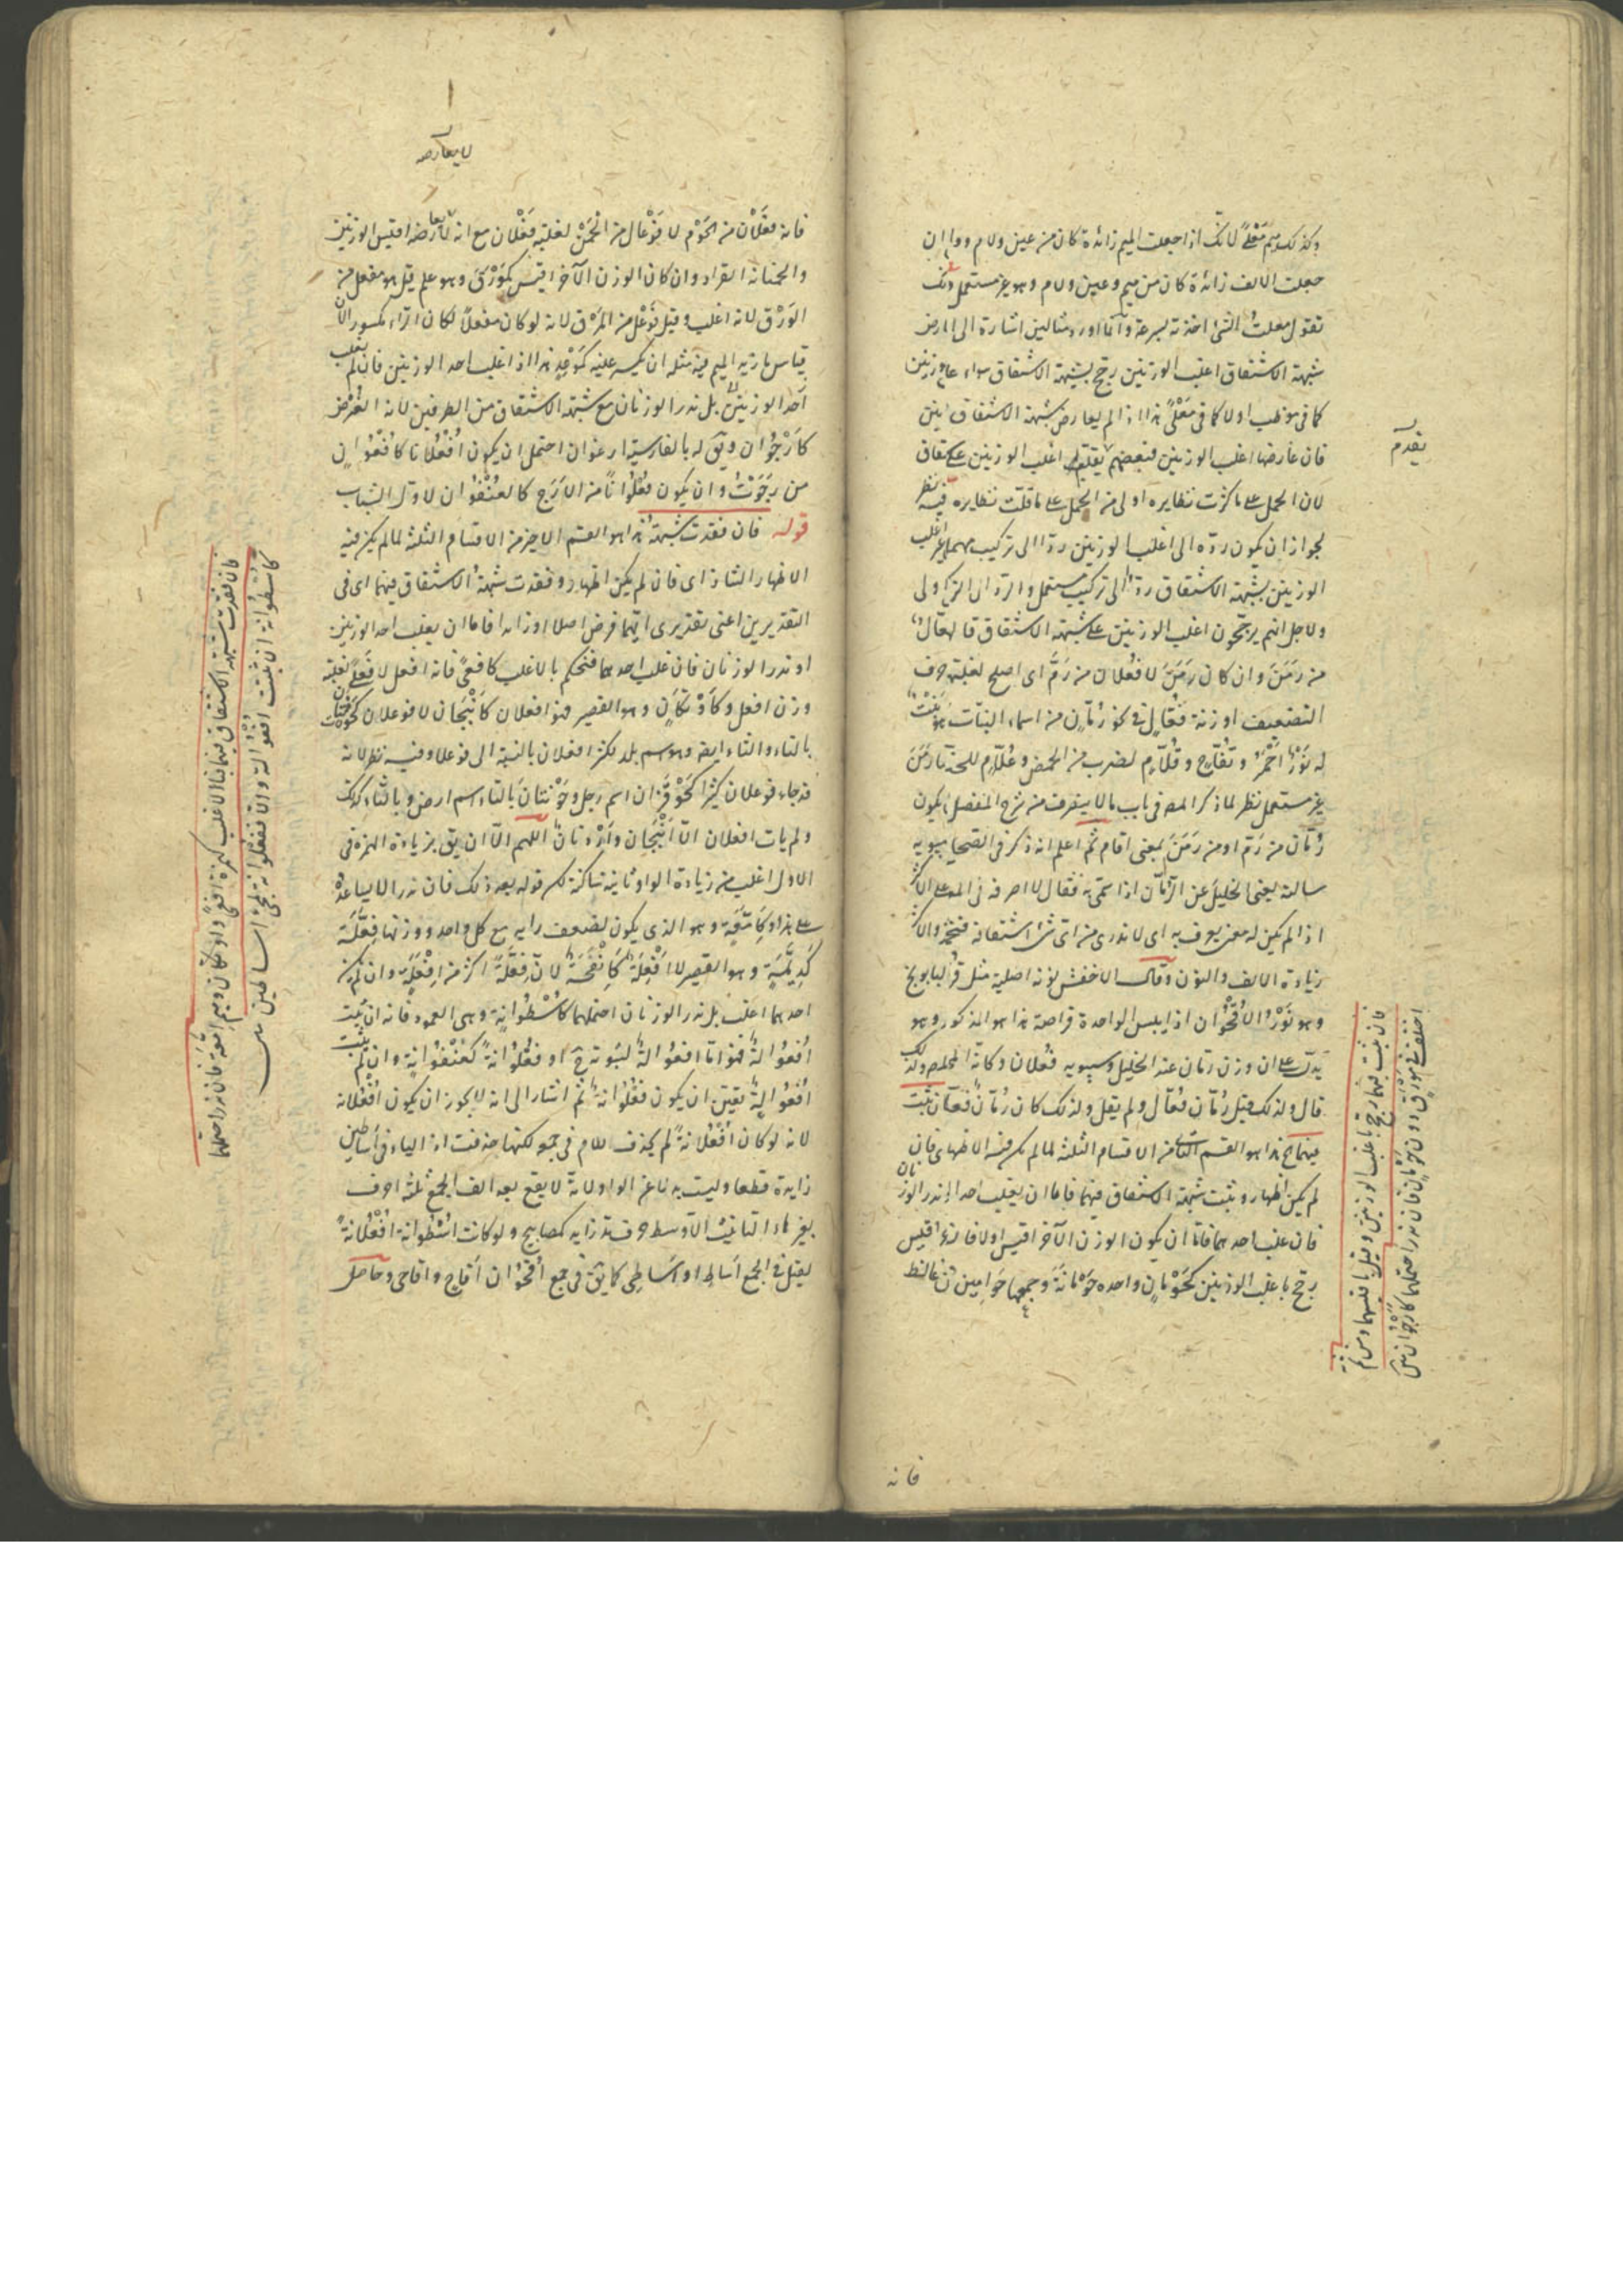 وكذلك ميم مَعْلًى لانك اذا جعلت الميم زائدة كان من عين ولام وواو ان
جعلت الالف زائدة كان من ميم وعين ولام وهو غير مستعمل
تقول معلت الشئ اخذته بسرعة وانما اورد مثالين اشارة الى المرض
شبهة الاشتقاق اغلب الوزنين رجح بشبهة الاشتقاق سواء
كما فى موظب اولا كما فى مَعْلًى هذا اذا لم يعارض شبهة الاشتقاق
فان عارضها اغلب الوزنين فبعضهم اغلب الوزنين على
لان الحمل على ما كثرت نظايره اولى من الحمل على ما قلت نظايره فيه نظر
لجواز ان يكون رده الى اغلب الوزنين ردا الى تركيب مهمل
الوزنين بشبهة الاشتقاق ردا الى تركيب مستعمل والرد الى
ولاجل انهم يرجحون اغلب الوزنين على شبهة الاشتقاق قالوا فُعّال
من رَمَنَ وان كان رَمَنَ لا فُعْلان من رَمَّ اى اصلح لغلبة حرف
التضعيف او زنة فُعّال فى نحو رُمّان من اسماء النبات
له نَوْرٌ احْمَرُ وتُفّاحٍ وقُلّامٍ لضرب من الحمض وعُلّامٍ للحناء رَمَنَ
غير مستعمل نظر لما ذكر المص فى باب ما لا ينصرف من شرح المفصل يكون
رُمّان من رَمَّ او من رَمَنَ بمعنى اقام ثم اعلم انه ذكر فى الصحاح سيبويه
سالته يعنى الخليل عن الرمّان اذا سمّى به فقال لا اصرفه فى المعرفة على الاكثر
اذا لم يكن له معنى يعرف به اى لا ندرى من اى شئ اشتقاقه فنحمله على الاكثر
زيادة الالف والنون وقال الاخفش نونه اصلية مثل قُرّاص
وهو نَوْرُ الاُقْحُوان اذا يبس الواحدة قراصة هذا هو المذكور وهو
يدل على ان وزن رمّان عند الخليل وسيبويه فُعْلان
قال ولذلك قيل رُمّان فُعّال ولم يقل ولذلك كان رُمّان فُعّالا
فيهما الخ هذا هو القسم الثانى من الاقسام الثلثة لما لم يكن فيه الاظهار
لم يكن اظهار وثبتت شبهة الاشتقاق فيهما فاما ان يغلب احد او يندر الوزنان
فان غلب احدهما فاما ان يكون الوزن الآخر اقيس اولا
رجح باغلب الوزنين كحَوْمانٍ واحده حَوْمانَةٌ وجمعها حَوامِين
فانه
فان ثبتت فيهما رجح باغلب الوزنين وقيل باقيسهما ومن ثم
اختلف فى مَوْرَقٍ دون حَوْمانٍ فان ندرا احتملهما كاُرْجُوان
لا يعارضه
فانه فَعْلان من الحوم لا فَوْعال من الحَمْن لغلبة فَعْلان مع انه لا يعارضه اقيس الوزنين
والحمنانة القراد وان كان الوزن الآخر اقيس كمَوْرَقٍ وهو علم قيل هو مفعل من
الوَرْق لانه اغلب وقيل فَوْعَل من المَرْق لانه لو كان مفعلا لكان الراء مكسورا لان
قياس ما زيد الميم فى مثله ان يكسر عينه كمَوْعِد هذا اذا غلب احد الوزنين فان لم يغلب
احد الوزنين بل ندر الوزنان مع شبهة الاشتقاق من الطرفين
كاُرْجُوان ويق له بالفارسية ارغوان احتمل ان يكون اُفْعُلانا كاُفْعُوانٍ
من رَجَوْتُ وان يكون فُعْلُوانًا من الاَرَج كالعُنْفُوان لاول الشباب
قوله فان فقدت شبهة هذا هو القسم الاخير من الاقسام الثلثة لما لم يكن فيه
الاظهار الشاذ اى فان لم يكن اظهار وفقدت شبهة الاشتقاق فيهما اى فى
التقديرين اعنى تقديرى ايهما فرض اصلا او زايدا فاما ان يغلب احد الوزنين
او ندر الوزنان فان غلب احدهما فنحكم بالاغلب كافعًى فانه افعل لا فَعْلًى لغلبة
وزن افعل وكاَوْتَكانٍ وهو القصير فهو افعلان كاَنْبَجان لا فوعلان
بالتاء والثاء ايضا وهو اسم بلد لكثرة افعلان بالنسبة الى فوعلان وفيه نظر لانه
قد جاء فوعلان كثيرا كحَوْفَزان اسم رجل وحَوْتَنان بالتاء اسم ارض وبالثاء كذلك
ولم يات افعلان الا اَنْبَجان واَرْوَنان اللهم الا ان يق بزيادة الهمزة فى
الاول اغلب من زيادة الواو ثانية ساكنة لكن قوله بعد ذلك فان ندر الا يساعده
على هذا وكاِمَّعَةٍ وهو الذى يكون لضعف رايه مع كل واحد ووزنها فِعَّلَة
كدِنَّبَةٍ وهو القصير لا اِفْعَلَة كاِنْفَحَة لان فِعَّلَة اكثر من اِفْعَلَةٍ وان لم يكن
احدهما اغلب بل ندر الوزنان احتملهما كاُسْطُوانة وهى العمود فانه ان ثبت
اُفْعُوالة فهو اما افعوالة لثبوته او فُعْلُوانة كعُنْفُوانة وان لم يثبت
اُفْعُوالة تعين ان يكون فُعْلُوانة ثم اشار الى انه لا يجوز ان يكون اُفْعُلانة
لانه لو كان اُفْعُلانة لم يحذف اللام فى جمعه لكنها حذفت اذ الياء فى اَساطين
زايدة قطعا وليست بدلا عن الواو لانه لا يقع بعد الف الجمع ثلثة احرف
بغير هاء التانيث الا واوسطه حرف مد زايد كمصابيح ولو كانت اُسْطُوانة اُفْعُلانة
لقيل فى الجمع اَساطٍ او اَساطِى كما يق فى جمع اُقْحُوان اَقاحٍ واقاحى وحاصل
فان فقدت شبهة الاشتقاق فيهما فبالاغلب كهمزة افعًى واَوْتَكان وميم اِمَّعَة فان ندرا احتملهما
كاُسْطُوانة ان ثبتت اُفْعُوالة والا ففُعْلُوانة لمجئ اساطين